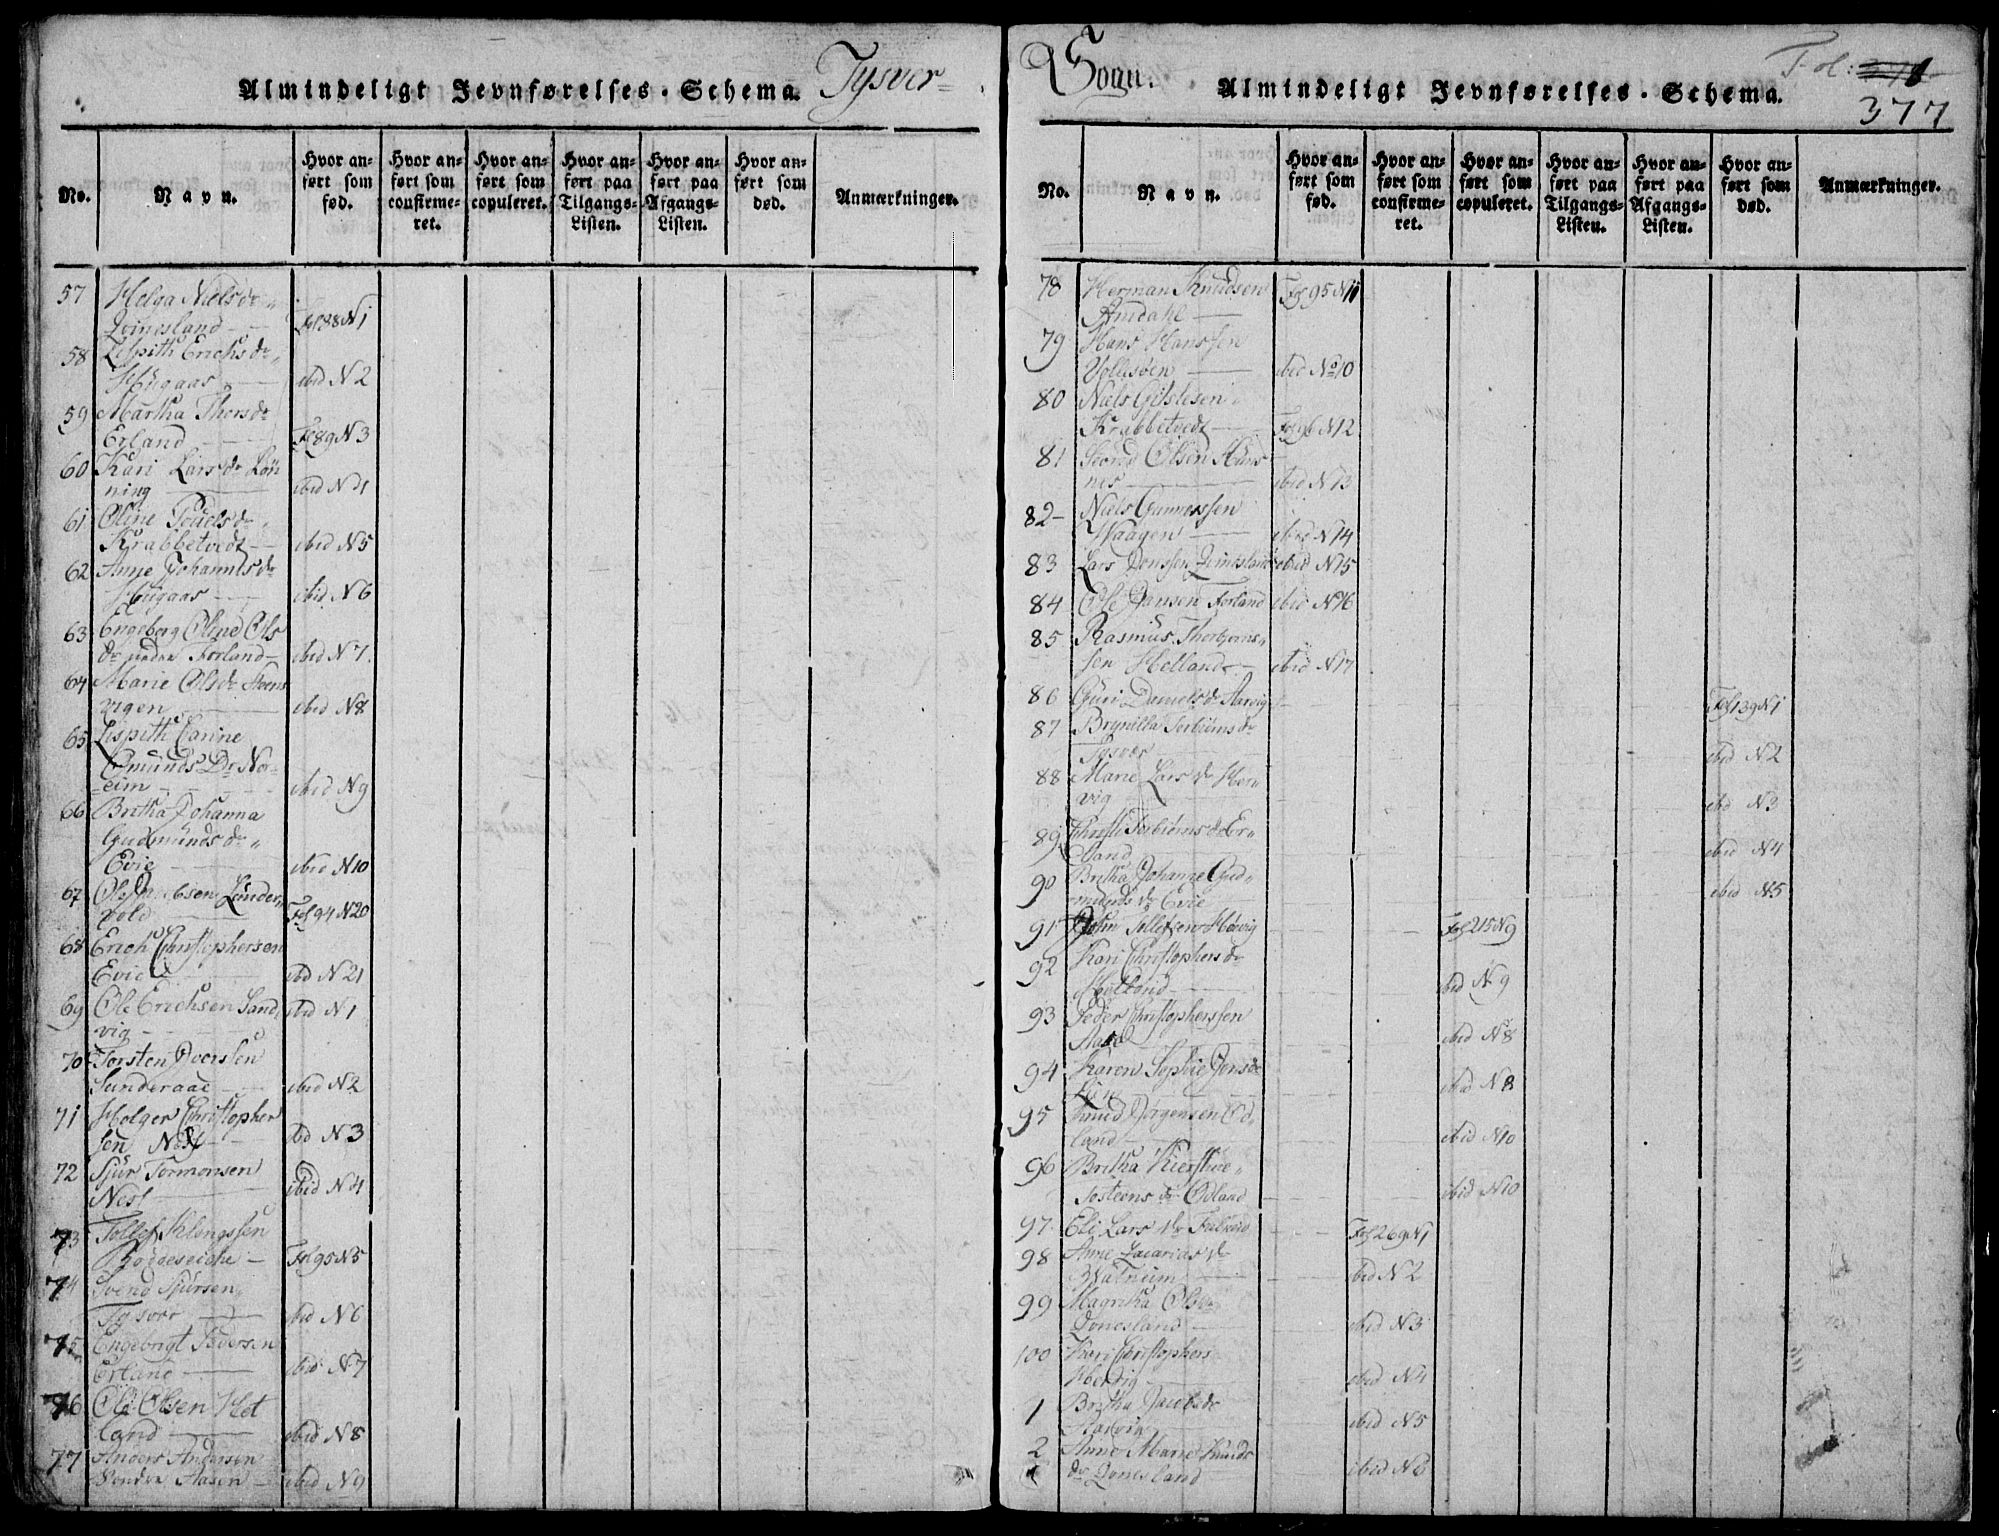 Almindeligt Jevnførelses-Schema. Tysver
No.
Navn.
Hvor anført som fød.
Hvor anført som confirmeret.
Hvor anført som copuleret.
Hvor anført paa Tilgangs-Listen.
Hvor anført paa Afgangs-Listen.
Hvor anført som død.
Anmærkninger.
57 Helga Nielsdr
Qvinesland Fol 88 N 1
58 Lispith Erichsdr
Hügaas ibid N 2
59 Martha Thorsdr
Erland Fol 89 N 3
60 Kari Larsdr Løn
ning ibid N 4
61 Oline Pouelsdr
Krabbetvedt ibid N 5
62 Anne Johannisdr
Hügaas ibid N 6
63 Engeborg Oline Ols
dr nedre Forland ibid N 7
64 Marie Olsdr Steens
vigen ibid N 8
65 Lispith Carine
Omunds Dr Nor-
eim ibid N 9
66 Britha Johanna
Gudmunds dr
Evie ibid N 10
67 Ole Jacobsen Lunder
vold Fol 94 N 20
68 Erich Christophersen
Evie ibd N 21
69 Ole Erichsen Sand
vig ibd N 1
70 Torsten Iversen
Sunderaae ibid N 2
71 Holger Christopher
sen Nesf ibd N 3
72 Sjur Tormonsen
Nesf ibid N 4
73 Tollef Klengssen
Fol 95 N 5
74 Svend Sjursen
Tysvær ibd N 6
75 Engebrigt Pedersen
Erland ibid N 7
76 Ole Olsen Het
land ibid N 8
77 Anders Andersen
Aasen ibid N 9
Sogn. Almindeligt Jevnførelses-Schema.
Fol:
377
No.
Navn.
Hvor anført som fød.
Hvor anført som confirmeret.
Hvor anført som copuleret.
Hvor anført paa Tilgangs-Listen.
Hvor anført paa Afgangs-Listen.
Hvor anført som død.
Anmærkninger.
78 Herman Knudsen Fol 95 N 11
Amdahl
79 Hans Hanssen
ibid No 10
80 Niels Gitslesen
Krabbetvedt Fol 96 N 12
81 Olsen Hüs
nes ibid N 13
82 Niels Gunnerssen
Waagen ibid N 14
83 Lars Jonssen Qvinesland ibid N 15
84 Ole Jansen Forland ibid N 16
85 Rasmus Thorbjørns
sen Helland ibid N 17
86 Guri Danielsdr Aarvig Fol 139 N 1
87 Brynilla Torbiørnsdr
Tysvær ibid N 2
88 Marie Larsdr Her
vig ibd N 3
89 Christi Torbiørnsdr Er
land ibid N 4
90 Britha Johanne Gud
munds dr Evie ibid N 5
91 John Tollefsen Hervig Fol 215 N 9
92 Kari Christophersdr
Hetland ibid N 9
93 Peder Christopherssen
ibid N 8
94 Karen Sophie Jensdr
ibid N 8
95 Knud Jørgensen Od
land ibid N 10
96 Britha Kierstine
Tosteens dr Odland ibid N 10
97 Eli Lars dr Falkeid Fol 269 N 1
98 Anne Zacarias dr
ibid N 2
99 Magritha Olsdr
Qvinesland ibid N 3
100 Kari Christophers
Hervig ibid N 4
1 Britha Jacobsdr
Aarvig ibid N 5
2 Anne Marie Knuds
dr Qvinesland ibid N 6